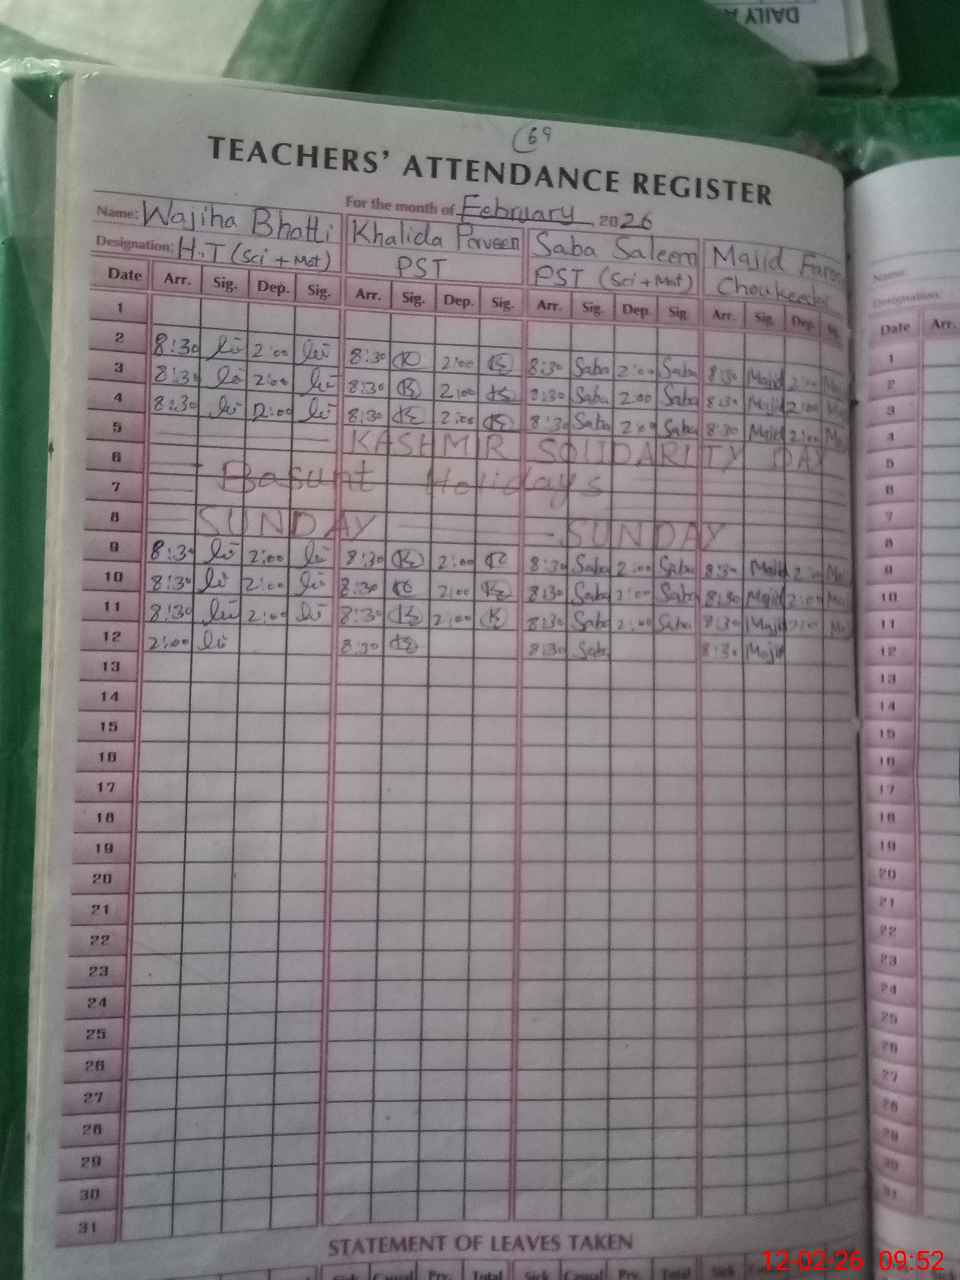 DAILY A
69
TEACHERS' ATTENDANCE REGISTER
For the month of February 2026
Name: Wajiha Bhatti Khalida Parveen Saba Saleem Majid Faroo
Designation: H.T (Sci + Mat) PST PST (Sci + Mat) Choukeedar
Date Arr. Sig. Dep. Sig. Arr. Sig. Dep. Sig. Arr. Sig. Dep. Sig Arr. Sig. Dep. Sig.
1
2 8:30 2:00 8:30 2:00 8:30 Saba 2:00 Saba 8:30 Majid 2:00
3 8:30 2:00 8:30 2:00 8:30 Saba 2:00 Saba 8:30 Majid 2:00
4 8:30 2:00 8:30 2:00 8:30 Saba 2:00 Saba 8:30 Majid 2:00
5 KASHMIR SOLIDARITY DAY
6 Basunt Holidays
7
8 SUNDAY SUNDAY
9 8:30 2:00 8:30 2:00 8:30 Saba 2:00 Saba 8:30 Majid 2:00
10 8:30 2:00 8:30 2:00 8:30 Saba 2:00 Saba 8:30 Majid 2:00
11 8:30 2:00 8:30 2:00 8:30 Saba 2:00 Saba 8:30 Majid 2:00
12 2:00 8:30 8:30 Saba 8:30 Majid
13
14
15
16
17
18
19
20
21
22
23
24
25
26
27
28
29
30
31
STATEMENT OF LEAVES TAKEN
Sick Casual Prv. Total Sick Casual Prv. Total Sick
Name:
Designation:
Date Arr.
1
2
3
4
5
6
7
8
9
10
11
12
13
14
15
16
17
18
19
20
21
22
23
24
25
26
27
28
29
30
31
12-02-26 09:52